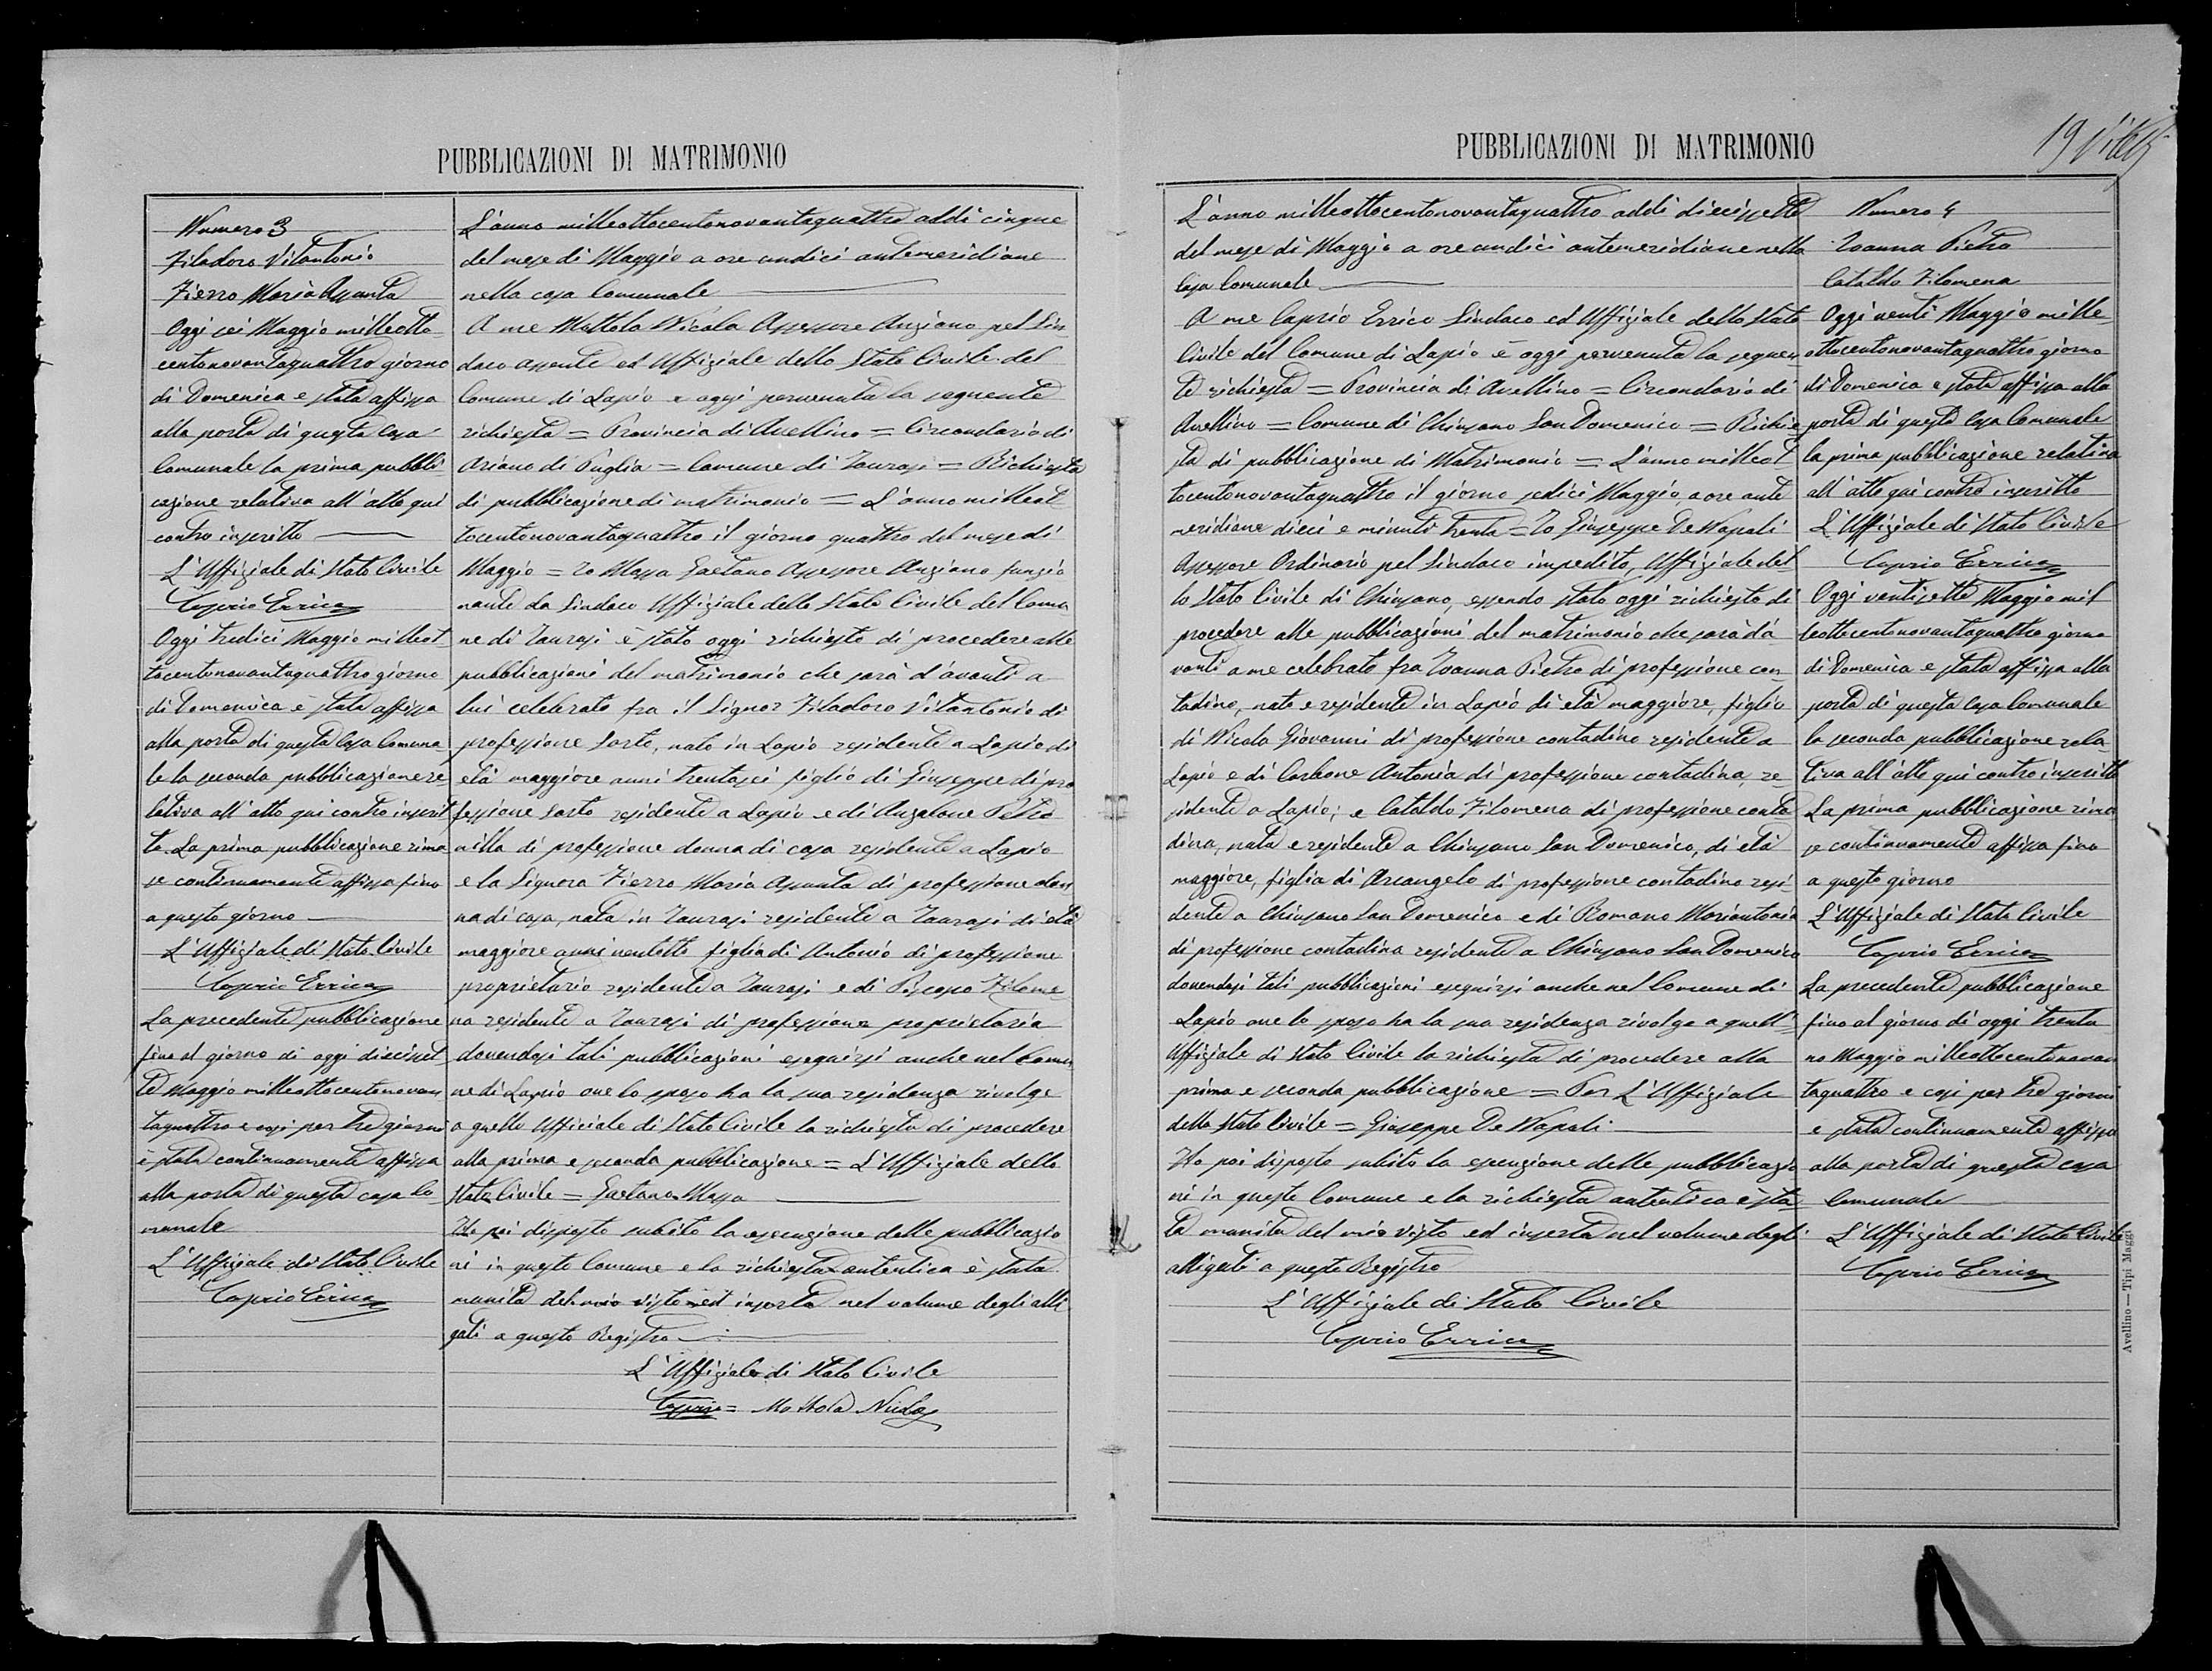 PUBBLICAZIONI DI MATRIMONIO
Numero 3
Filadoro Vitantonio
Fierro Maria Assunta
Oggi sei Maggio milleotto
centonovantaquattro giorno
di Domenica e stata affissa
alla porta di questa Casa
Comunale la prima pubbli
cazione relativa all'atto qui
contro inscritto
L'Uffiziale di Stato Civile
Caprio Errico
Oggi tredici Maggio milleot
tocentonovantaquattro giorno
di Domenica è stata affissa
alla porta di questa Casa Comuna
le la seconda pubblicazione re
lativa all'atto qui contro inscrit
to. La prima pubblicazione rima
se continuamente affissa fino
a questo giorno
L'Uffiziale di Stato Civile
Caprio Errico
La precedente pubblicazione
fino al giorno di oggi dieciset
te Maggio milleottocentonovan
taquattro e così per tre giorni
è stata continuamente affissa
alla porta di questa casa Co
munale
L'Uffiziale di Stato Civile
Caprio Errico
L'anno milleottocentonovantaquattro addi cinque
del mese di Maggio a ore undici antemeridiane
nella casa Comunale
A me Mottola Nicola Assessore Anziano pel Sin
daco assente ed Uffiziale dello Stato Civile del
Comune di Lapio e oggi pervenuta la seguente
richiesta = Provincia di Avellino = Circondario di
Ariano di Puglia = Comune di Taurasi = Richiesta
di pubblicazione di matrimonio = L'anno milleot
tocentonovantaquattro il giorno quattro del mese di
Maggio = Io Massa Gaetano Assessore Anziano funzio
nante da Sindaco Uffiziale dello Stato Civile del Comu
ne di Taurasi è stato oggi richiesto di procedere alle
pubblicazioni del matrimonio che sarà d'avanti a
lui celebrato fra il Signor Filadoro Vitantonio di
professione Sarto, nato in Lapio residente a Lapio di
età maggiore anni trentasei figlio di Giuseppe di pro
fessione Sarto residente a Lapio e di Anzalone Petro
nilla di professione donna di casa residente a Lapio
e la Signora Fierro Maria Assunta di professione don
na di casa, nata in Taurasi residente a Taurasi di età
maggiore anni ventotto figlia di Antonio di professione
proprietario residente a Taurasi e di Piscopo Filome
na residente a Taurasi di professione proprietaria
dovendosi tali pubblicazioni eseguirsi anche nel Comu
ne di Lapio ove lo sposo ha la sua residenza rivolge
a quello Ufficiale di Stato Civile la richiesta di procedere
alla prima e seconda pubblicazione = L'Uffiziale dello
Stato Civile = Gaetano Massa
Ho poi disposto subito la esecuzione delle pubblicazio
ni in questo Comune e la richiesta autentica è stata
munita del mio visto ed inserta nel volume degli alli
gati a questo Registro
L'Uffiziale di Stato Civile
Caprio = Mottola Nicola
PUBBLICAZIONI DI MATRIMONIO
19
L'anno milleottocentonovantaquattro addi diecisette
del mese di Maggio a ore undici antemeridiane nella
Casa Comunale
A me Caprio Errico Sindaco ed Uffiziale dello Stato
Civile del Comune di Lapio è oggi pervenuta la seguen
te richiesta = Provincia di Avellino = Circondario di
Avellino = Comune di Chiusano San Domenico = Richie
sta di pubblicazione di Matrimonio = L'anno milleot
tocentonovantaquattro il giorno sedici Maggio, a ore ante
meridiane dieci e minuti trenta = Io Giuseppe De Napoli
Assessore Ordinario pel Sindaco impedito, Uffiziale del
lo Stato Civile di Chiusano, essendo stato oggi richiesto di
procedere alle pubblicazioni del matrimonio che sarà da
vanti a me celebrato fra Ioanna Pietro di professione con
tadino, nato e residente in Lapio di età maggiore, figlio
di Nicola Giovanni di professione contadino residente a
Lapio e di Carbone Antonia di professione contadina, re
sidente a Lapio; e Cataldo Filomena di professione conta
dina, nata e residente a Chiusano San Domenico, di età
maggiore, figlia di Arcangelo di professione contadino resi
dente a Chiusano San Domenico e di Romano Mariantonia
di professione contadina residente a Chiusano San Domenico
dovendosi tali pubblicazioni eseguirsi anche nel Comune di
Lapio ove lo sposo ha la sua residenza rivolge a quell'
Uffiziale di Stato Civile la richiesta di procedere alla
prima e seconda pubblicazione = Per L'Uffiziale
dello Stato Civile = Giuseppe De Napoli
Ho poi disposto subito la esecuzione delle pubblicazio
ni in questo Comune e la richiesta autentica è sta
ta munita del mio visto ed inserta nel volume degli
alligati a questo Registro
L'Uffiziale di Stato Civile
Caprio Errico
Numero 4
Ioanna Pietro
Cataldo Filomena
Oggi venti Maggio mille
ottocentonovantaquattro giorno
di Domenica e stata affissa alla
porta di questa Casa Comunale
la prima pubblicazione relativa
all'atto qui contro inscritto
L'Uffiziale di Stato Civile
Caprio Errico
Oggi ventisette Maggio mil
leottocentonovantaquattro giorno
di Domenica e stata affissa alla
porta di questa Casa Comunale
la seconda pubblicazione rela
tiva all'atto qui contro inscritto
La prima pubblicazione rima
se continuamente affissa fino
a questo giorno
L'Uffiziale di Stato Civile
Caprio Errico
La precedente pubblicazione
fino al giorno di oggi trentu
no Maggio milleottocentonovan
taquattro e così per tre giorni
e stata continuamente affissa
alla porta di questa casa
Comunale
L'Uffiziale di Stato Civile
Caprio Errico
Avellino — Tipi Maggi